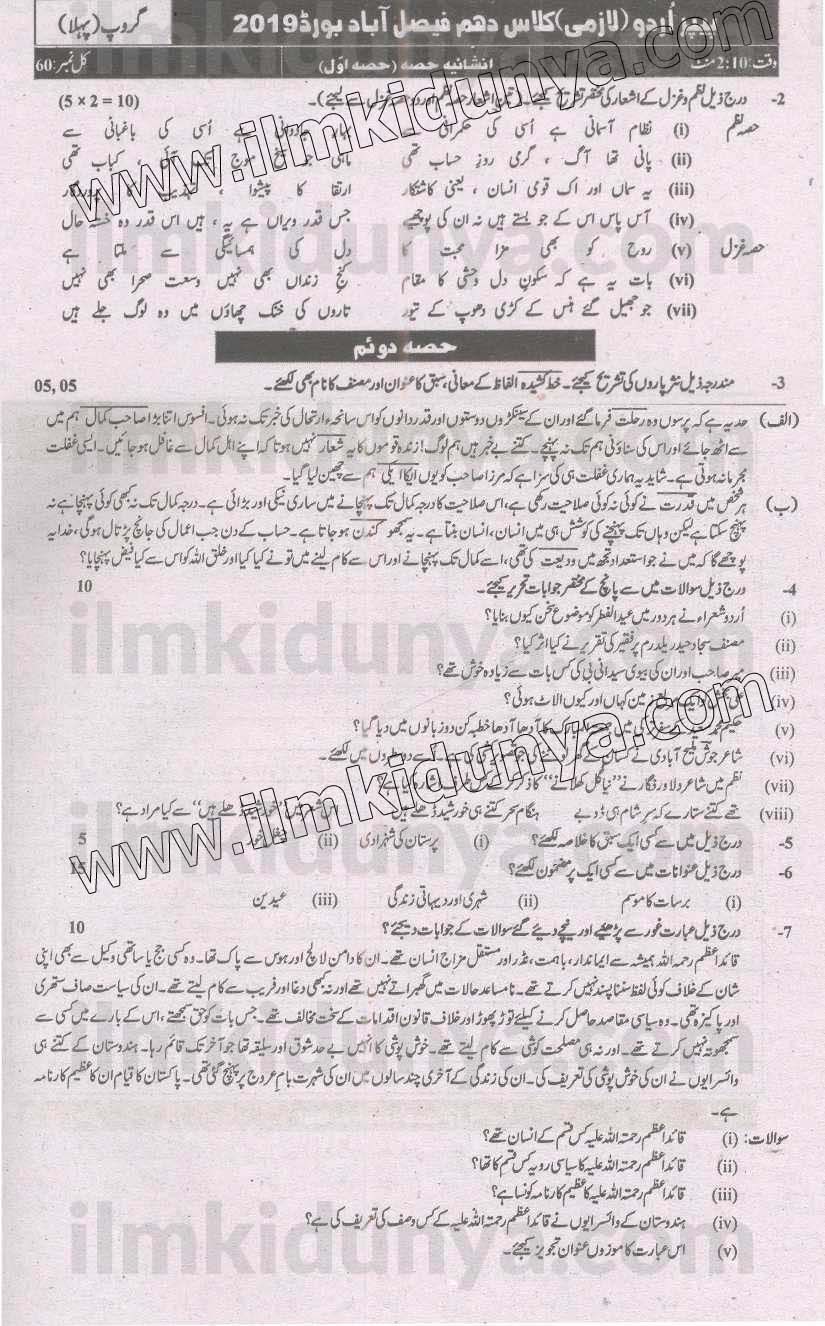 پیپر اُردو (لازمی) کلاس دھم فیصل آباد بورڈ 2019 گروپ (پہلا)
وقت: 2:10 منٹ انشائیہ حصہ (حصہ اوّل) کل نمبر: 60
2- درج ذیل نظم و غزل کے اشعار کی مختصر تشریح کیجئے۔ (تین اشعار حصہ نظم اور دو حصہ غزل سے لیجئے)۔ (5 × 2 = 10)
حصہ نظم (i) نظام آسمانی ہے اُسی کی حکمرانی سے ہے اُسی کی باغبانی سے
(ii) پانی تھا آگ ، گرمی روزِ حساب تھی ماہی جو سیخ موج تک آئی ، کباب تھی
(iii) یہ سماں اور اک قوی انسان ، یعنی کاشتکار ارتقا کا پیشوا ، تہذیب کا پروردگار
(iv) آس پاس اس کے جو بستے ہیں نہ ان کی پوچھیے جس قدر ویراں ہے یہ ، ہیں اس قدر وہ خستہ حال
حصہ غزل (v) روح کو بھی مزا محبت کا دل کی ہمسائیگی سے ملتا ہے
(vi) بات یہ ہے کہ سکونِ دل وحشی کا مقام کنجِ زنداں بھی نہیں وسعت صحرا بھی نہیں
(vii) جو جھیل گئے ہنس کے کڑی دھوپ کے تیور تاروں کی خنک چھاؤں میں وہ لوگ جلے ہیں
حصہ دوئم
3- مندرجہ ذیل نثر پاروں کی تشریح کیجئے۔ خط کشیدہ الفاظ کے معانی، سبق کا عنوان اور مصنف کا نام بھی لکھئے۔ 05, 05
(الف) حد یہ ہے کہ پرسوں وہ رحلت فرما گئے اور ان کے سینکڑوں دوستوں اور قدر دانوں کو اس سانحہء ارتحال کی خبر تک نہ ہوئی۔ افسوس اتنا بڑا صاحب کمال ہم میں
سے اٹھ جائے اور اس کی سناؤنی ہم تک نہ پہنچے۔ کتنے بے خبر ہیں ہم لوگ! زندہ قوموں کا یہ شعار نہیں ہوتا کہ اپنے اہل کمال سے غافل ہو جائیں۔ ایسی غفلت
مجرمانہ ہوتی ہے۔ شاید یہ ہماری غفلت ہی کی سزا ہے کہ مرزا صاحب کو یوں اچا ایکی ہم سے چھین لیا گیا۔
(ب) ہر شخص میں قدرت نے کوئی نہ کوئی صلاحیت رکھی ہے، اس صلاحیت کو درجہ کمال تک پہنچانے میں ساری نیکی اور بڑائی ہے۔ درجہ کمال تک نہ کبھی کوئی پہنچا ہے نہ
پہنچ سکتا ہے لیکن وہاں تک پہنچنے کی کوشش ہی میں انسان، انسان بنتا ہے۔ یہ سمجھو کندن ہو جاتا ہے۔ حساب کے دن جب اعمال کی جانچ پڑتال ہوگی، خدا یہ
پوچھے گا کہ میں نے جو استعداد تجھ میں ودیعت کی تھی، اسے کمال تک پہنچانے اور اس سے کام لینے میں تو نے کیا کیا اور خلق اللہ کو اس سے کیا فیض پہنچایا؟
4- درج ذیل سوالات میں سے پانچ کے مختصر جوابات تحریر کیجئے۔ 10
(i) اُردو شعراء نے ہر دور میں عید الفطر کو موضوع سخن کیوں بنایا؟
(ii) مصنف سجاد حیدر یلدرم پر فقیر کی تقریر نے کیا اثر کیا؟
(iii) میر صاحب اور ان کی بیوی سیدانی بی کی کس بات سے زیادہ خوش تھے؟
(iv) زمین کہاں اور کیوں الاٹ ہوئی؟
(v) حکیم محمد سعید کے سفر کی میں جمعۃ المبارک کا آدھا آدھا خطبہ کن دو زبانوں میں دیا گیا؟
(vi) شاعر جوش ملیح آبادی نے کسان سطروں میں لکھئے۔
(vii) نظم میں شاعر دلاور فگار نے ’’نیا گل کھلانے‘‘ کا ذکر
(viii) تھے کتنے ستارے کہ سرِ شام ہی ڈوبے ہنگام سحر کتنے ہی خورشید ڈھلے ہیں اس شعر میں ’’خورشید ڈھلے ہیں‘‘ سے کیا مراد ہے؟
5- درج ذیل میں سے کسی ایک سبق کا خلاصہ لکھئے؟ (i) پرستان کی شہزادی (ii) چغل خور 5
6- درج ذیل عنوانات میں سے کسی ایک پر مضمون لکھئے؟ 15
(i) برسات کا موسم (ii) شہری اور دیہاتی زندگی (iii) عیدین
7- درج ذیل عبارت غور سے پڑھیئے اور نیچے دیئے گئے سوالات کے جوابات دیجئے؟ 10
قائد اعظم رحمتہ اللہ ہمیشہ سے ایماندار، باہمت، نڈر اور مستقل مزاج انسان تھے۔ ان کا دامن لالچ اور ہوس سے پاک تھا۔ وہ کسی جج یا ساتھی وکیل سے بھی اپنی
شان کے خلاف کوئی لفظ سننا پسند نہیں کرتے تھے۔ نامساعد حالات میں گھبراتے نہیں تھے اور نہ کبھی دغا اور فریب سے کام لیتے تھے۔ ان کی سیاست صاف ستھری
اور پاکیزہ تھی۔ وہ سیاسی مقاصد حاصل کرنے کیلئے توڑ پھوڑ اور خلاف قانون اقدامات کے سخت مخالف تھے۔ جس بات کو حق سمجھتے، اس کے بارے میں کسی سے
سمجھوتہ نہیں کرتے تھے۔ اور نہ ہی مصلحت کوشی سے کام لیتے تھے۔ خوش پوشی کا انہیں بے حد شوق اور سلیقہ تھا جو آخر تک قائم رہا۔ ہندوستان کے کتنے ہی
وائسرایوں نے ان کی خوش پوشی کی تعریف کی۔ ان کی زندگی کے آخری چند سالوں میں ان کی شہرت بامِ عروج پر پہنچ گئی تھی۔ پاکستان کا قیام ان کا عظیم کارنامہ
ہے۔
سوالات: (i) قائد اعظم رحمتہ اللہ علیہ کس قسم کے انسان تھے؟
(ii) قائد اعظم رحمتہ اللہ علیہ کا سیاسی رویہ کس قسم کا تھا؟
(iii) قائد اعظم رحمتہ اللہ علیہ کا عظیم کارنامہ کونسا ہے؟
(iv) ہندوستان کے وائسرایوں نے قائد اعظم رحمتہ اللہ علیہ کے کس وصف کی تعریف کی ہے؟
(v) اس عبارت کا موزوں عنوان تجویز کیجئے۔
www.ilmkidunya.com
www.ilmkidunya.com
ilmkidunya.com
ilmkidunya.com
ilmkidunya.com
ilmkidunya.com
ilmkidunya.com
ilmkidunya.com